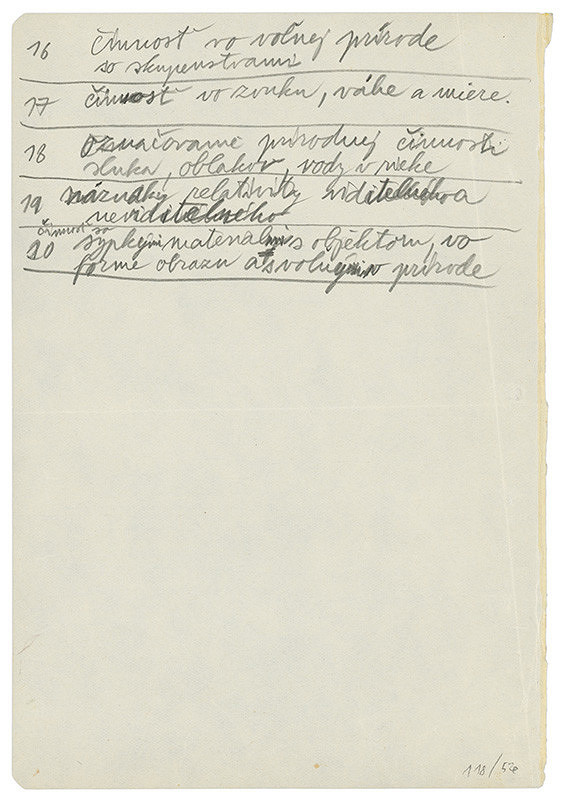 16 činnosť vo voľnej prírode
so skupenstvami
17 činnosť vo zvuku, váhe a miere.
18 označovanie prírodnej činnosti
slnka, oblakov, vody v rieke
19 náznaky relativity viditeľného a
neviditeľného
činnosť so
20 sypkými materialmi s objektom, vo
forme obrazu a s voľnými v prírode
118/56